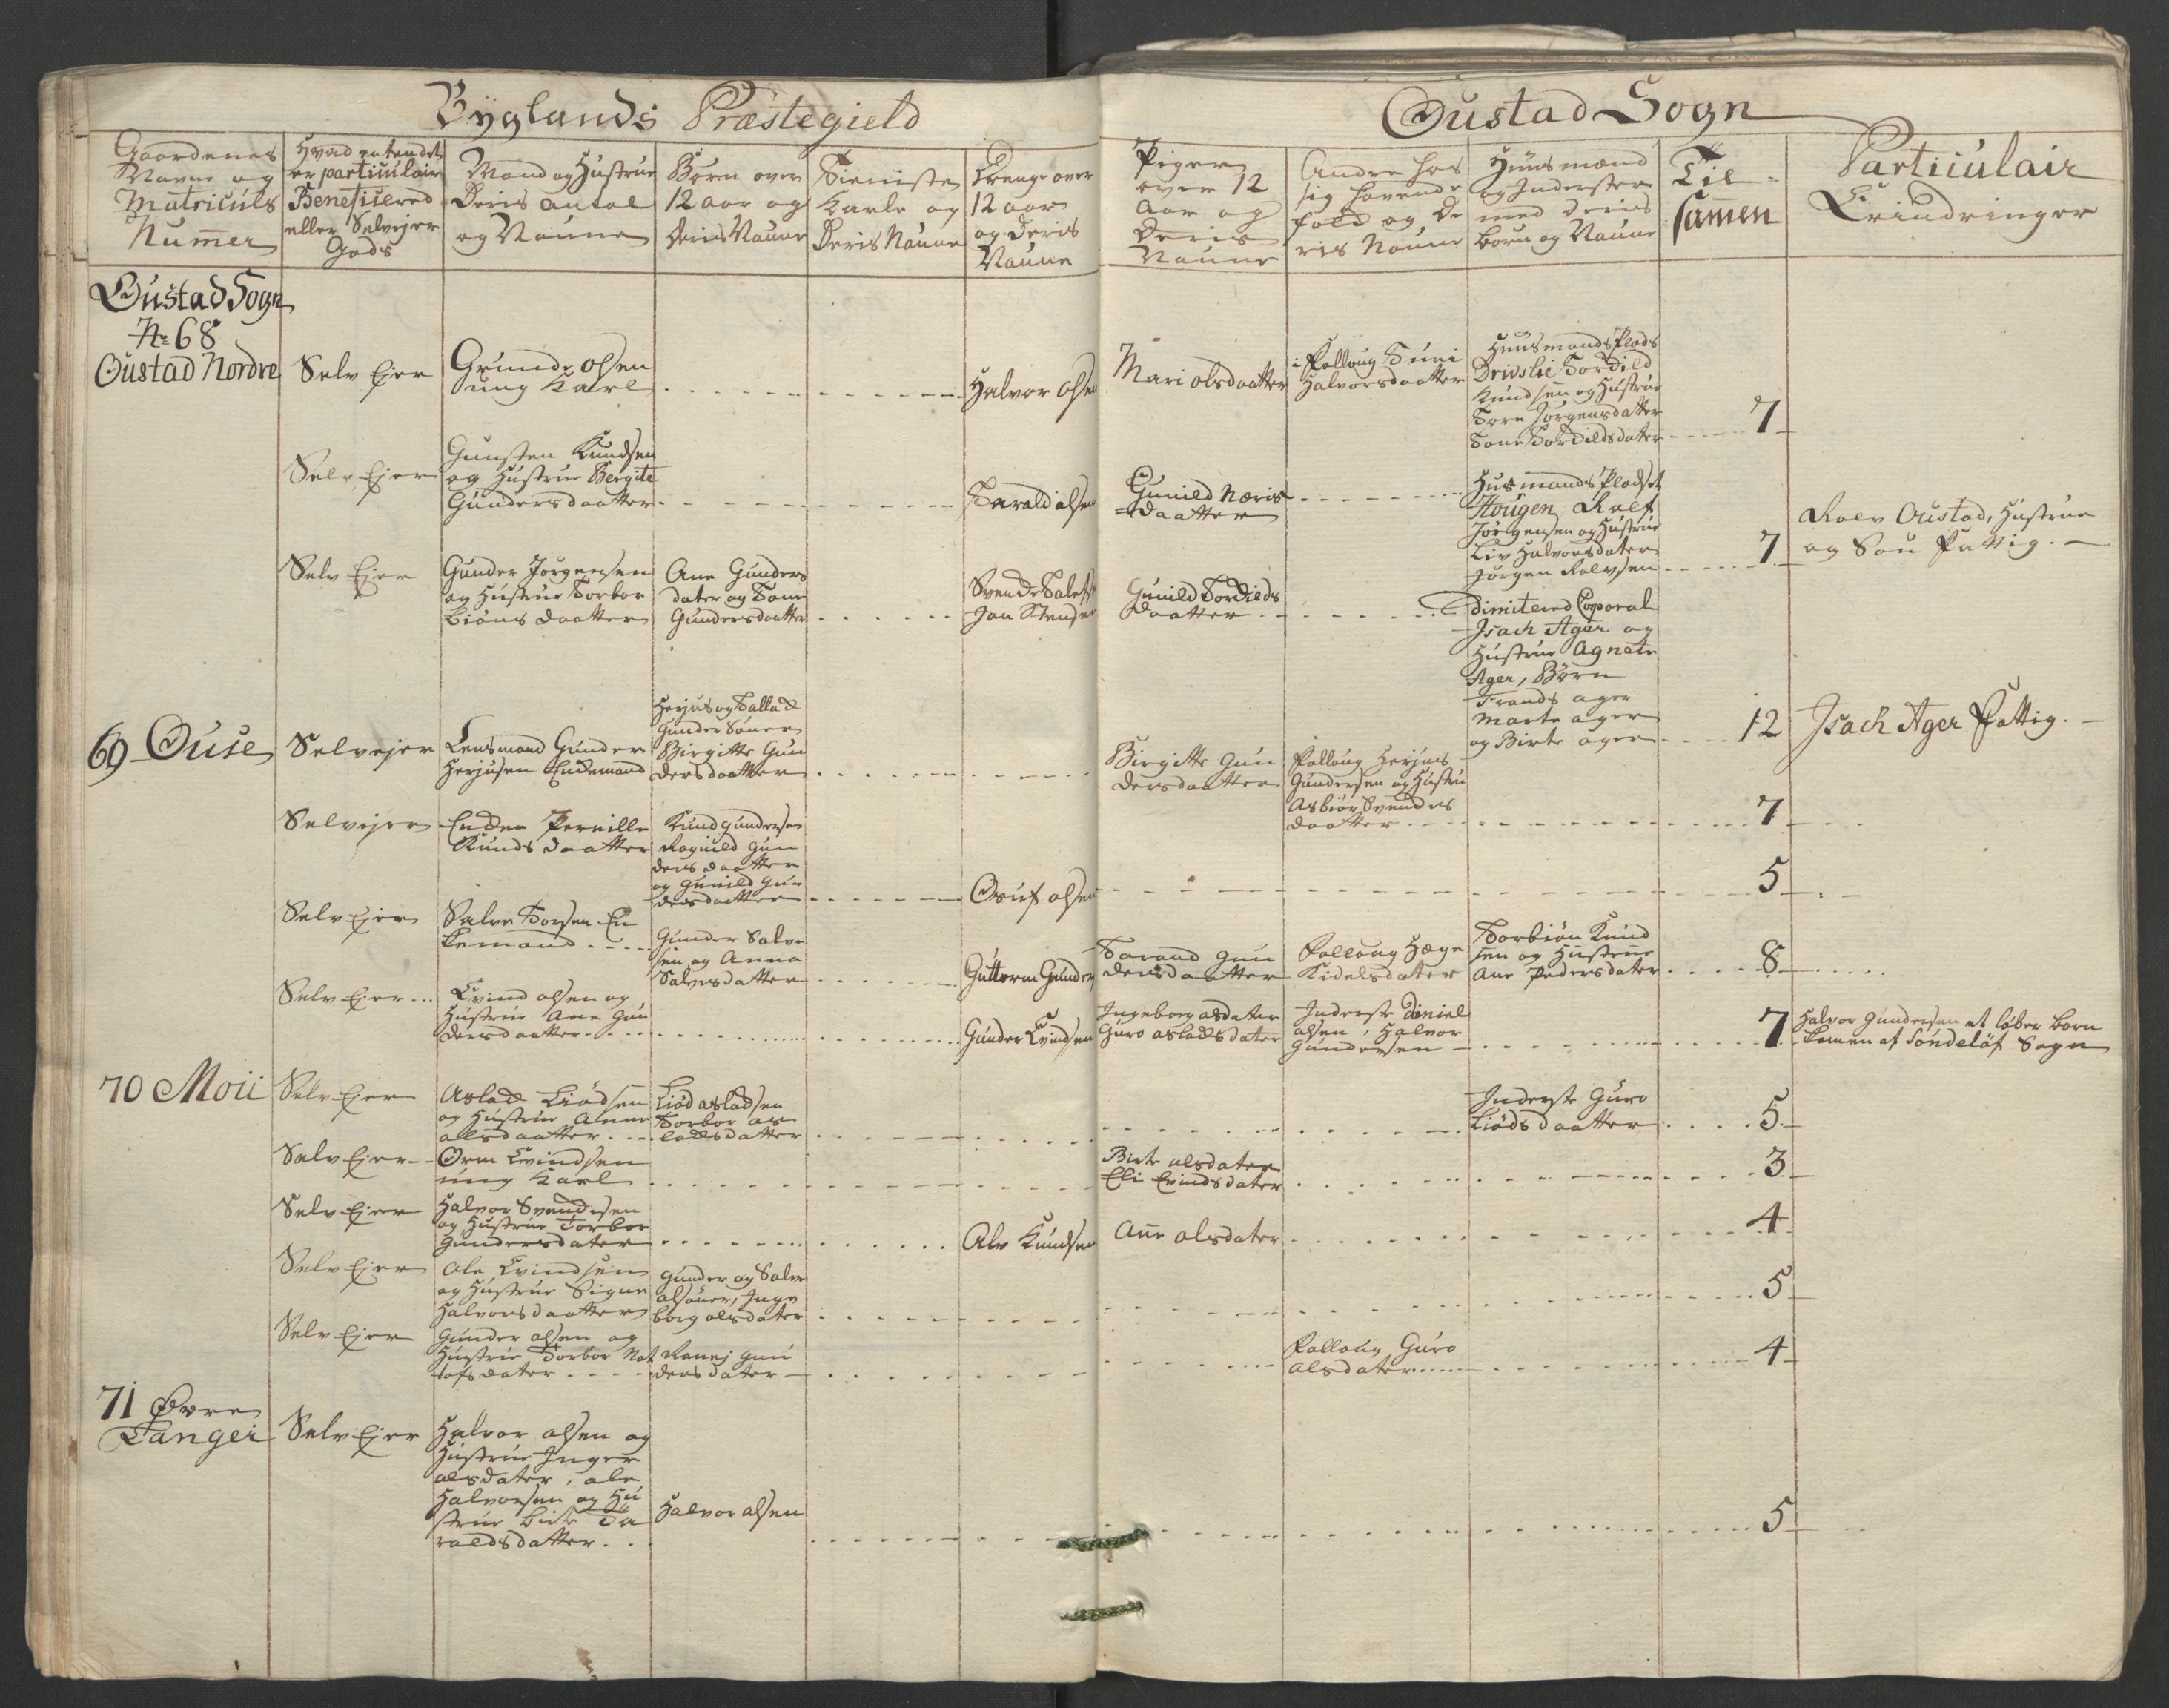 Byglands Præstegield
Oustad Sogn
Gaardenes
Navne og
Matriculs
Numer
Hvad entendet
er particulair
Beneficered
eller Selvejer
Gods
Mand og Hustrue
Deris antal
og Navne
Børn over
12 aar og
deris Navne
Tieniste
Karle og
Deris Navne
Drenge over
12 aar
og deris
Navne
Piger
over 12
Aar og
Deris
Navne
Andre hos
sig havende
fold og De
ris Navne
Huusmænd
og Inderster
med deris
børn og Navne
Til
samen
Particulair
Erindringer
Oustad Sogn
No 68
Oustad Nordre
Selv Eier
Grunde Olsen
ung Karl
Halvor Olsen
Mari olsdaatter
i Folloug Guni
Halvorsdaatter
Huusmands Plads
Drivslie Tordild
Knudsen og Hustrue
Tore Jørgensdatter
Tone Tordildsdater
7
Selv Ejer
Gunsten Knudsen
og Hustrue Bergite
Gundersdaatter
Tarald olsen
Gunild Neris
=daatter
Husmands Pladset
Hougen Rolf
Jørgensen og Hustrue
Liv Halvorsdater
Jørgen Rolvsen
7
Rolv Oustad, Hustrue
og Søn Fattig.
Selv Ejer
Gunder Jørgensen
og Hustrue Torbor
Biøns daatter
Ane Gunders
dater og Tone
Gundersdaatter
Svend Talefs
Jon Stensen
Gunild Tordilds
daatter
Dimitered Coporal
Isach Ager og
Hustrue Agnete
Ager, Børn
Frands ager
Marte ager
og Birte ager
12
Isach Ager Fattig.
69 Ouse
Selvejer
Lensmand Gunder
Herjusen Enkemand
Herjus og Tallad
Gunder Sønner
Birgitte Gun
dersdaatter
Birgitte Gun
dersdaatter
Folloug Herjus
Gundersen og Hustru
Asbior Svends
daatter
7
Selvejer
Enken Pernille
Knuds daatter
Knud gundersen
Ragnild gun
ders daatter
og Gunild gun
dersdaatter
Osuf olsen
5
Selv Ejer
Salve Torsen En
kemand
Gunder Salve
sen og Anna
Salvesdatter
Guttorm Gunder
Torand gun
dersdaatter
Folloug Hege
Kidelsdater
Torbiøn Knud
sen og Hustrue
Ane Pedersdater
8
Selv Ejer
Evind olsen og
Hustrue Ane Gun
dersdaatter
Gunder Evindsen
Ingeborg asdater
Guro asladsdater
Inderste Daniel
olsen, Halvor
Gundersen
7
Halvor Gundersen et løber barn
komen af Søndeløf Sogn
70 Moii
Selv Ejer
Aslad Liødsen
og Hustrue Anne
olsdaatter
Liød asladsen
Torbor as
ladsdatter
Inderste Guro
Liødsdaatter
5
Selv Ejer
Orm Evindsen
ung Karl
Birte olsdater
Eli Evindsdater
3
Selv Ejer
Halvor Svendsen
og Hustrue Torbor
Gundersdater
Alv Knudsen
Ane olsdater
4
Selv Ejer
Ole Evindsen
og Hustrue Signe
Halvorsdaatter
Gunder og Salve
olsøner, Inge
borg olsdater
5
Selv Ejer
Gunder olsen og
Hustrue Torbor Not
tofsdater
Ranej gun
dersdater
Folloug Guro
olsdater
4
71 Øvre
Langei
Selv Ejer
Halvor olsen og
Hustrue Inger
olsdater, ole
Halvorsen og Hu
strue Birte Ta
raldsdatter
Halvor olsen
5